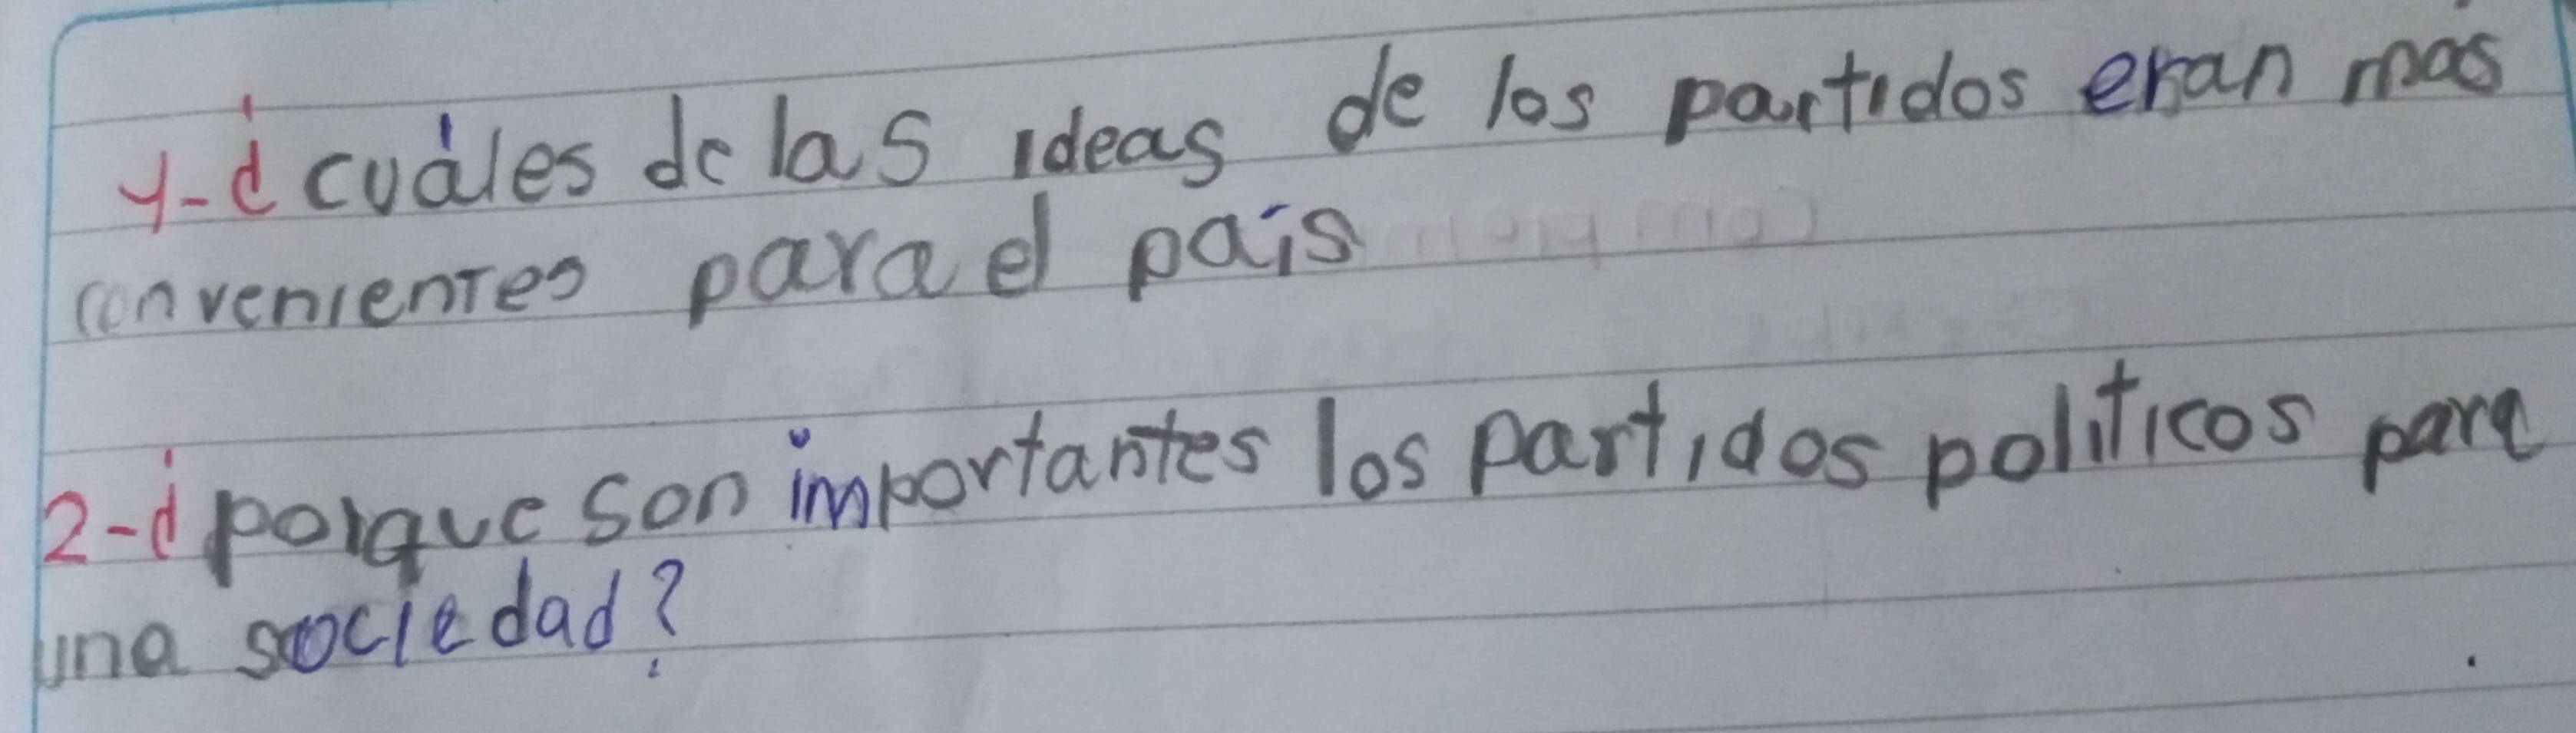 1-¿cuáles de las ideas de los partidos eran mas
convenientes para el país
2-¿porque son importantes los partidos politicos para
una sociedad?